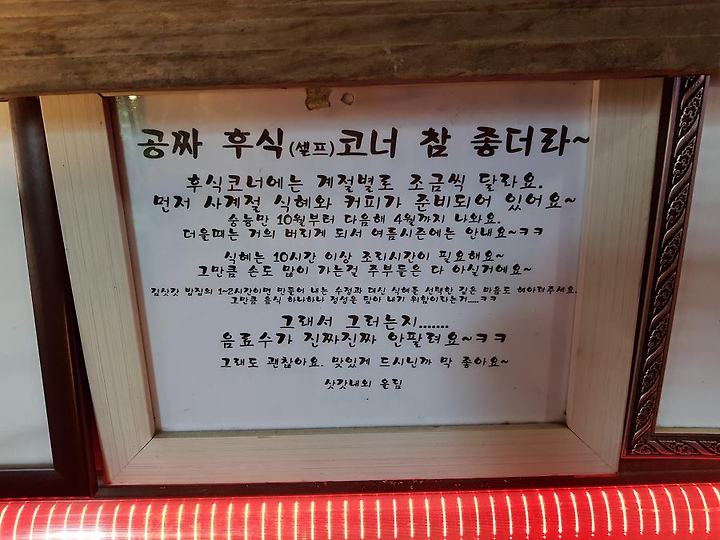 공짜 후식(셀프)코너 참 좋더라~
후식코너에는 계절별로 조금씩 달라요.
먼저 사계절 식혜와 커피가 준비되어 있어요~
숭늉만 10월부터 다음해 4월까지 나와요.
더울때는 거의 버리게 되서 여름시즌에는 안내요~ㅋㅋ
식혜는 10시간 이상 조리시간이 필요해요~
그만큼 손도 많이 가는걸 주부들은 다 아실거에요~
김삿갓 밥집의 1~2시간이면 만들어 내는 수정과 대신 식혜를 선택한 깊은 마음도 헤아려주세요.
그만큼 음식 하나하나 정성을 담아 내기 위함이라는거....ㅋㅋ
그래서 그러는지.......
음료수가 진짜진짜 안팔려요~ㅋㅋ
그래도 괜찮아요. 맛있게 드시닌까 막 좋아요~
삿갓내외 올림